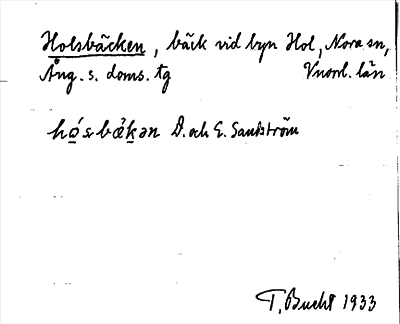 Holsbäcken, bäck vid byn Hol, Nora sn,
Ång. s. doms. tg Vnorrl. län
D. och E. Sandström
T. Bucht 1933